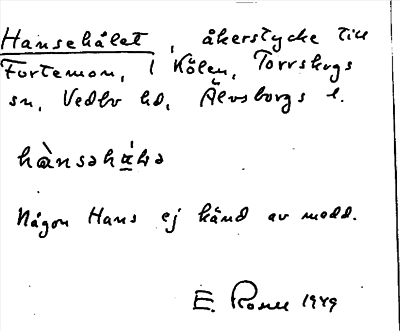 Hansehålet, åkerstycke till
Fortemon, i Kölen, Torrskogs
sn, Vedbo hd, Älvsborgs l.
Någon Hans ej känd av medd.
E. 1949